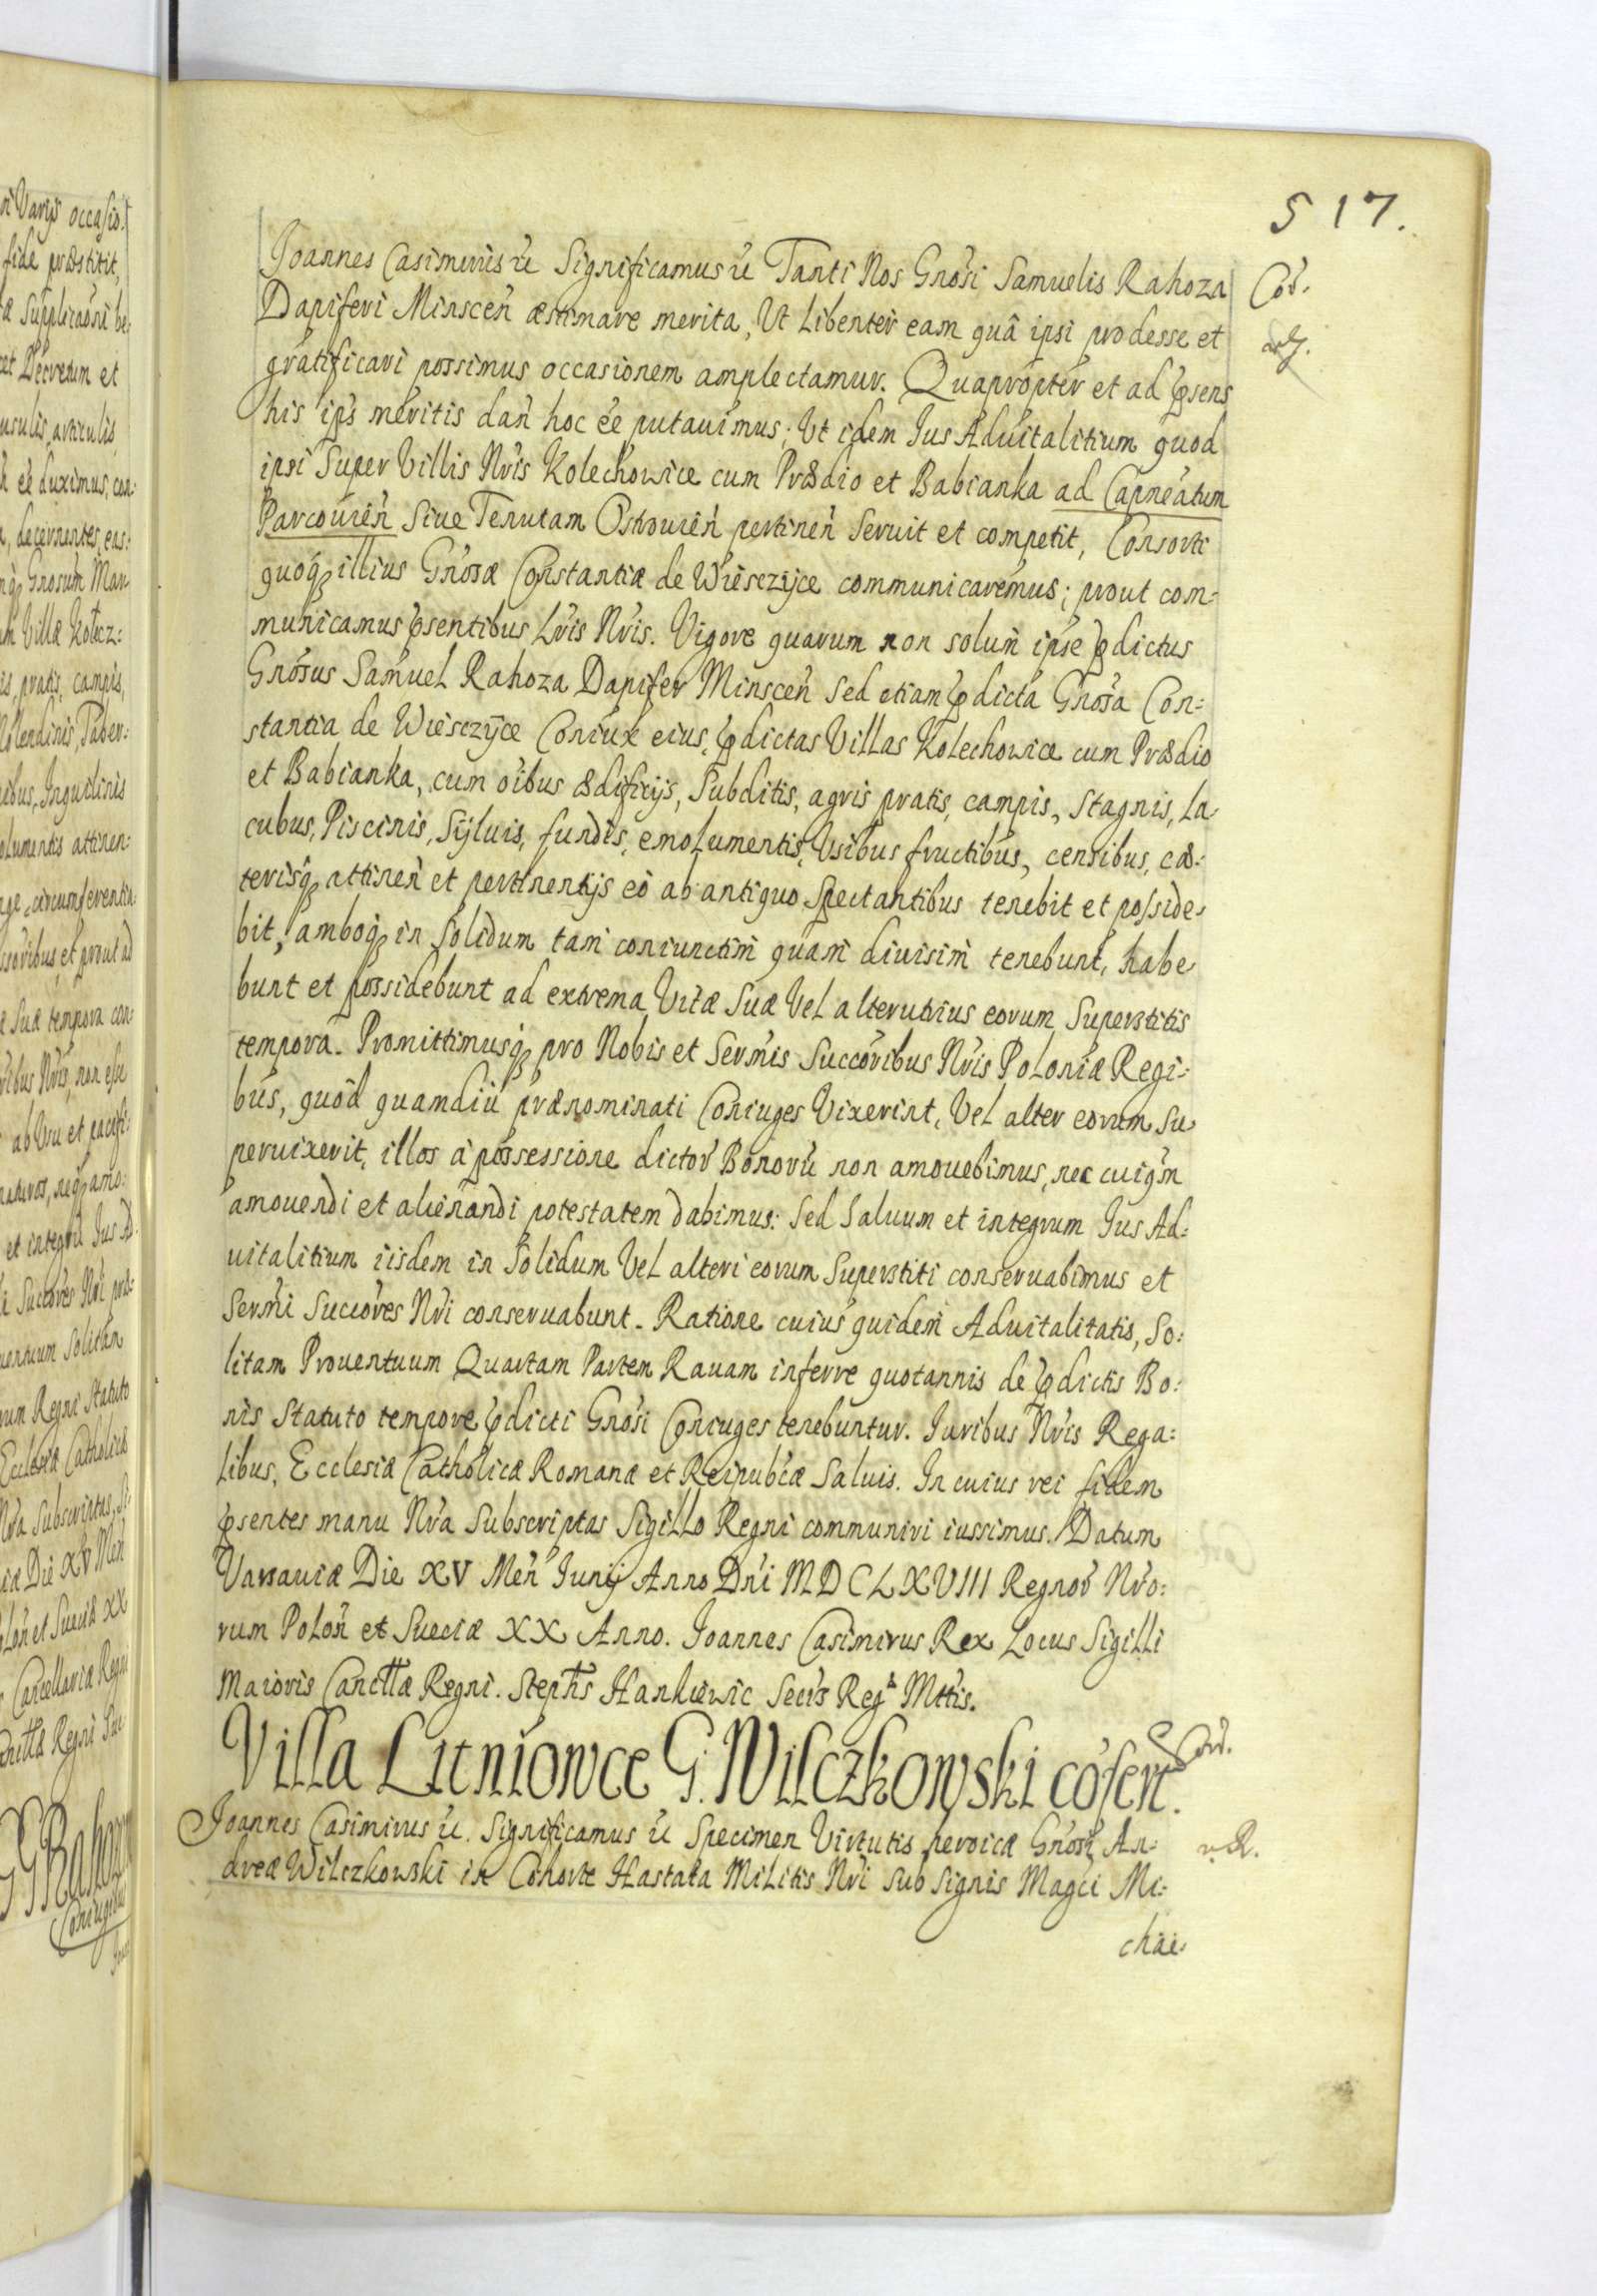 517.
Joannes Casimirus ꝛc Significamus ꝛc Tanti Nos Gnosi Samuelis Rahoza
Dapiferi Minsceń æstimare merita, Ut Libenter eam quâ ipsi prodesse et
gratificari possimus occasionem amplectamur. Quapropter et ad ꝓsens
his ips meritis dań hoc ee putauimus; Ut idem Jus Aduitalitium quod
ipsi Super Villis Nris Kolechowice cum Prædio et Babianka ad Capneatum
Parcouień Siue Tenutam Ostrouień pertineń Seruit et competit, Consorti
quoqꝫ illius Gnosæ Constantiæ de Wiesczyce communicaremus; prout com-
municamus ꝓsentibus Lris Nris. Vigore quarum non solum ipse ꝓdictus
Gnosus Samuel Rahoza Dapifer Minsceń Sed etiam ꝓdicta Gnosa Con:
stantia de Wiesczyce Coniux eius, ꝓdictas Villas Kolechowice cum Prædio
et Babianka, cum oibus ædificijs, Subditis, agris pratis, campis, Stagnis, La-
cubus, Piscinis, Syluis, fundis, emolumentis, Usibus fructibus, censibus, cæ:
terisqꝫ attineń et pertinentijs eo ab antiquo Spectantibus tenebit et posside-
bit, amboqꝫ in Solidum tam coniunctim quam diuisim tenebunt, habe-
bunt et possidebunt ad extrema Vitæ Suæ Vel alterutrius eorum Superstitis
tempora. Promittimusqꝫ pro Nobis et Sermis Succoribus Nris Poloniæ Regi:
bus, quod quamdiu prænominati Coniuges Vixerint, Vel alter eorum Su-
peruixerit, illos a possessione dictor Bonoru non amouebimus, nec cuiqm
amouendi et alienandi potestatem dabimus: Sed Saluum et integrum Jus Ad:
uitalitium iisdem in Solidum Vel alteri eorum Superstiti conseruabimus et
Sermi Succores Nri conseruabunt. Ratione cuius quidem Aduitalitatis, So:
litam Prouentuum Quartam Partem Rauam inferre quotannis de ꝓdictis Bo:
nis Statuto tempore ꝓdicti Gnosi Coniuges tenebuntur. Juribus Nris Rega:
Libus, Ecclesiæ Catholicæ Romanæ et Reipubcæ Saluis. In cuius rei fidem
ꝓsentes manu Nra Subscriptas Sigillo Regni communiri iussimus. Datum
Varsauiæ Die XV Meń Junij Anno Dni MDCLXVIII Regnor Nro:
rum Poloń et Sueciæ XX Anno. Joannes Casimirus Rex Locus Sigilli
Maioris Canctlæ Regni. Stephs Hankiewic Secrs Regæ Mttis.
Villa Litniowce G. Wilczkowski coſert.
Joannes Casimirus ꝛc. Significamus ꝛc Specimen Virtutis heroicæ Gnosi An-
dreæ Wilczkowski in Cohorte Hastata Militis Nri Sub Signis Magci Mi:
chae-
Cor.
Cor.